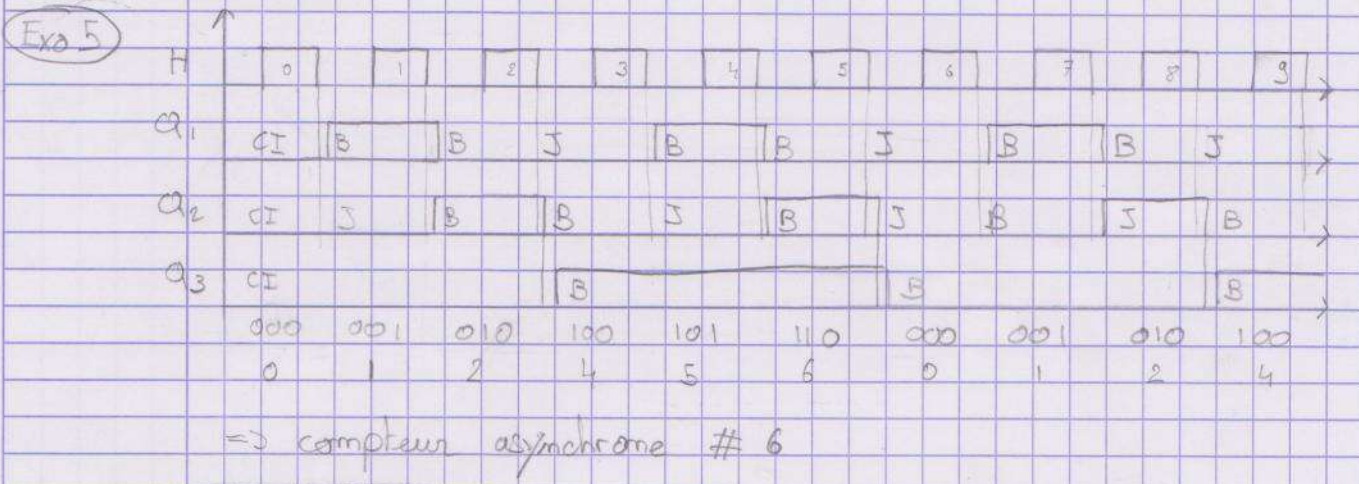 Exo 5
H 0 1 2 3 4 5 6 7 8 9
Q1 CI B B J B B J B B J
Q2 CI J B B J B J B J B
Q3 CI B B B
000 001 010 100 101 110 000 001 010 100
0 1 2 4 5 6 0 1 2 4
=> compteur asynchrone # 6